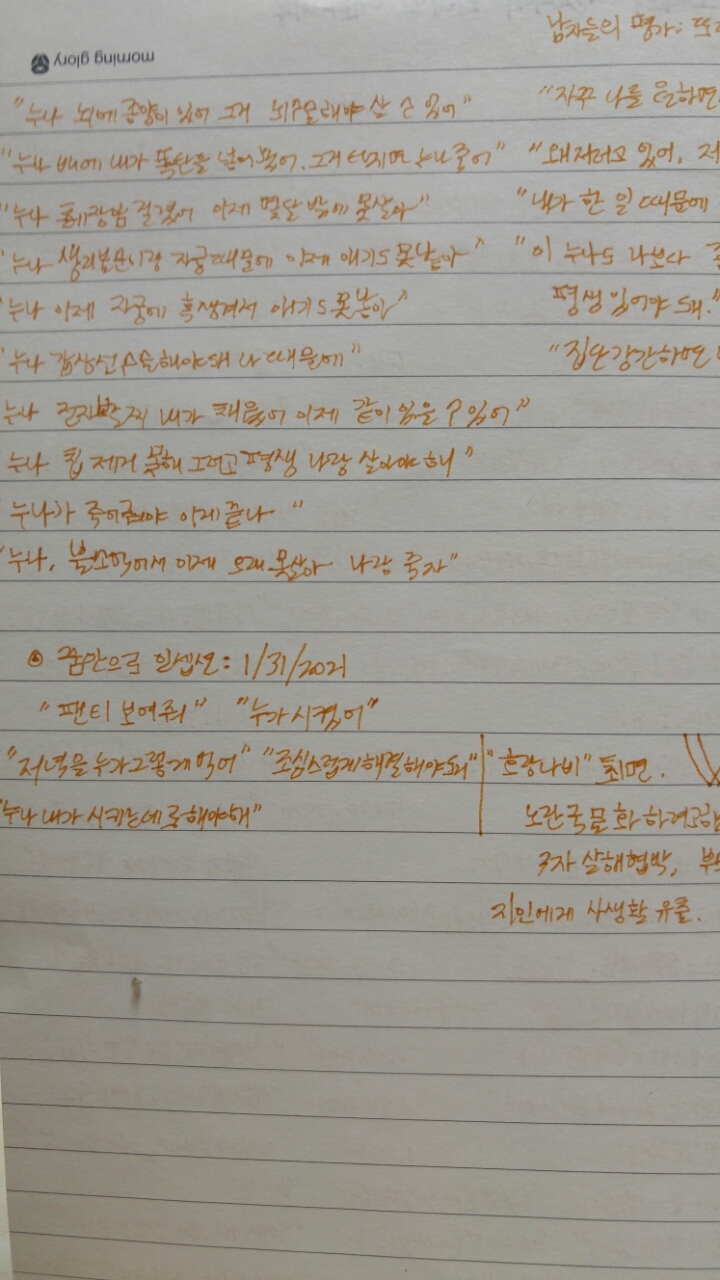 morning glory
남자들의 평가:
"누나 뇌에 종양이 있어 그거 뇌수술해야 살 수 있어"
"자꾸 나를 원하면
"누나 배에 내가 폭탄을 넣어 놨어. 그거 터지면 누나 죽어"
"왜 저러고 있어, 저
"누나 췌장암 걸렸어 이제 몇달 밖에 못살아"
"내가 한 일 때문에
"누나 자궁때문에 이제 애기도 못낳아"
"이 누나도 나보다
누나 이제 자궁에 혹생겨서 애기도 못낳아"
평생 있어야 돼."
"누나 갑상선 수술해야 돼 나 때문에"
"집단강간하면
누나 전자발찌 내가 채웠어 이제 같이 있을 수 있어"
"누나 칩 제거 못해 그러고 평생 나랑 살아야 해"
"누나가 죽어줘야 이제 끝나"
"누나, 이제 오래 못살아 나랑 죽자"
꿈안으로 인셉션: 1/31/2021
"팬티 보여줘" "누가 시켰어"
"저녁을 누가 그렇게 먹어" "조심스럽게 해결해야 돼"
"누나 내가 시키는데로 해야해"
"호랑나비" 최면.
노란국물화 하려고함
3자 살해협박,
지인에게 사생활 유출.